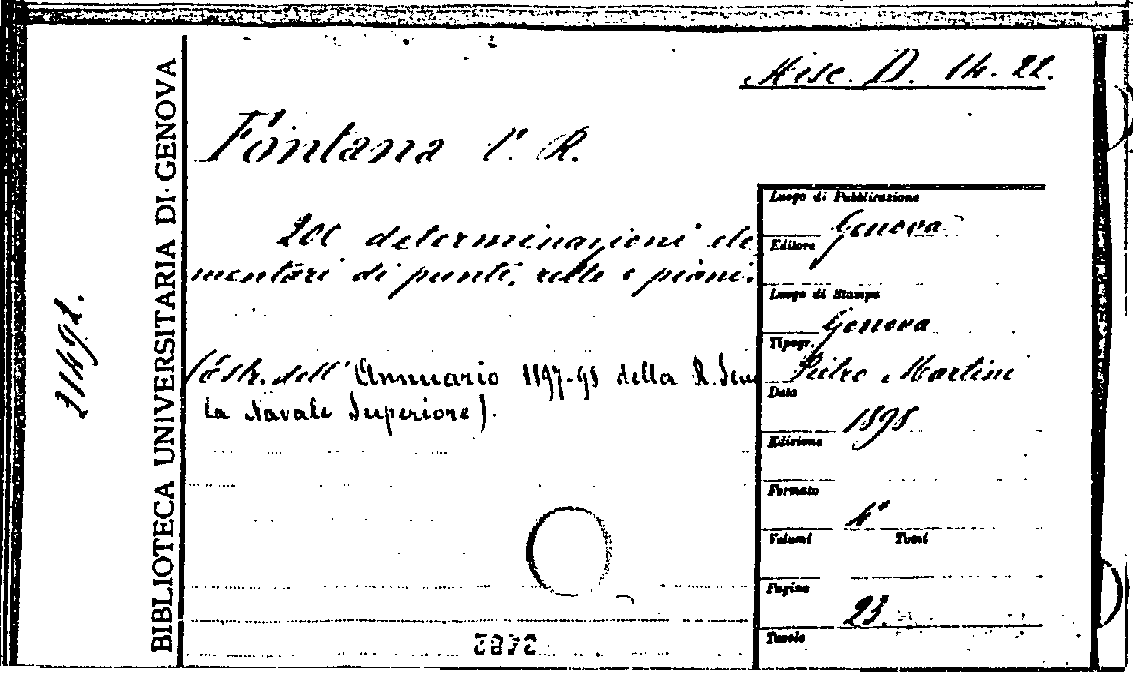 Misc. D. 14. 22.
Fontana V. R.
200 determinazioni ele
mentari di punti, rette e piani.
(estr. dell' Annuario 1897-98 della R. Scuo
la Navale Superiore).
Luogo di Pubblicazione
Genova
Editore
Luogo di Stampa
Genova
Tipogr.
Pietro Martini
Data
1898
Edizione
Formato
4°
Volumi Tomi
Pagine
23.
Tavole
BIBLIOTECA UNIVERSITARIA DI GENOVA